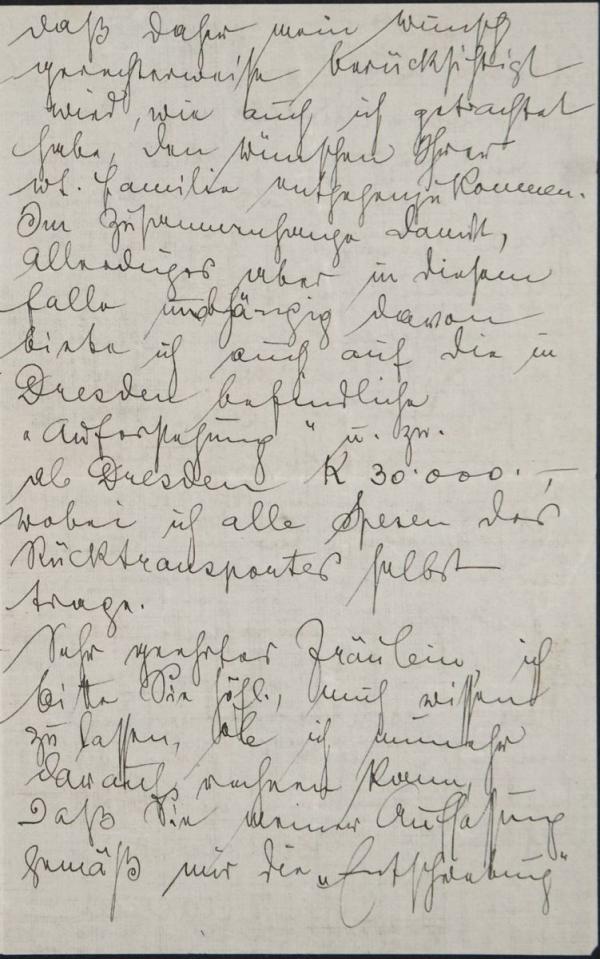 daß daher mein Wunsch
gerechterweise berücksichtigt
wird, wie auch ich getrachtet
habe, den Wünschen Ihrer
wt. Familie entgegenzukommen.
Im Zusammenhange damit,
allerdings aber in diesem
Falle unabhängig davon
biete ich auch auf die in
Dresden befindliche
„Auferstehung" u. zw.
ab Dresden K 30.000.–,
wobei ich alle Spesen des
Rücktransportes selbst
trage.
Sehr geehrtes Fräulein, ich
bitte Sie höfl., mich wissen
zu lassen, ob ich nunmehr
darauf rechnen kann,
Daß Sie meiner Auffassung
gemäß mir die „Entschwebung"